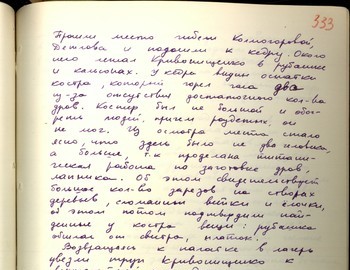 333
Прошли место гибели Колмогоровой,
Дятлова и подошли к кедру. Около
него лежал Кривонищенко в рубашке
и кальсонах. У кедра видны остатки
костра, который горел часа два
из-за отсутствия достаточного кол-ва
дров. Костер был не большой и обог-
реть людей, причем раздетых, он
не мог. Из осмотра места стало
ясно, что здесь было не два человека,
а больше, т.к проделана титани-
ческая работа по заготовке дров,
лапника. Об этом свидетельствует
большое кол-во зарезов на стволах
деревьев, сломанные ветки и ёлочки,
об этом потом подтвердили най-
денные у костра вещи: рубашка
обшлаг от свитра, платок.
Возвращаясь к палатке в лагерь
увезли труп Кривонищенко к